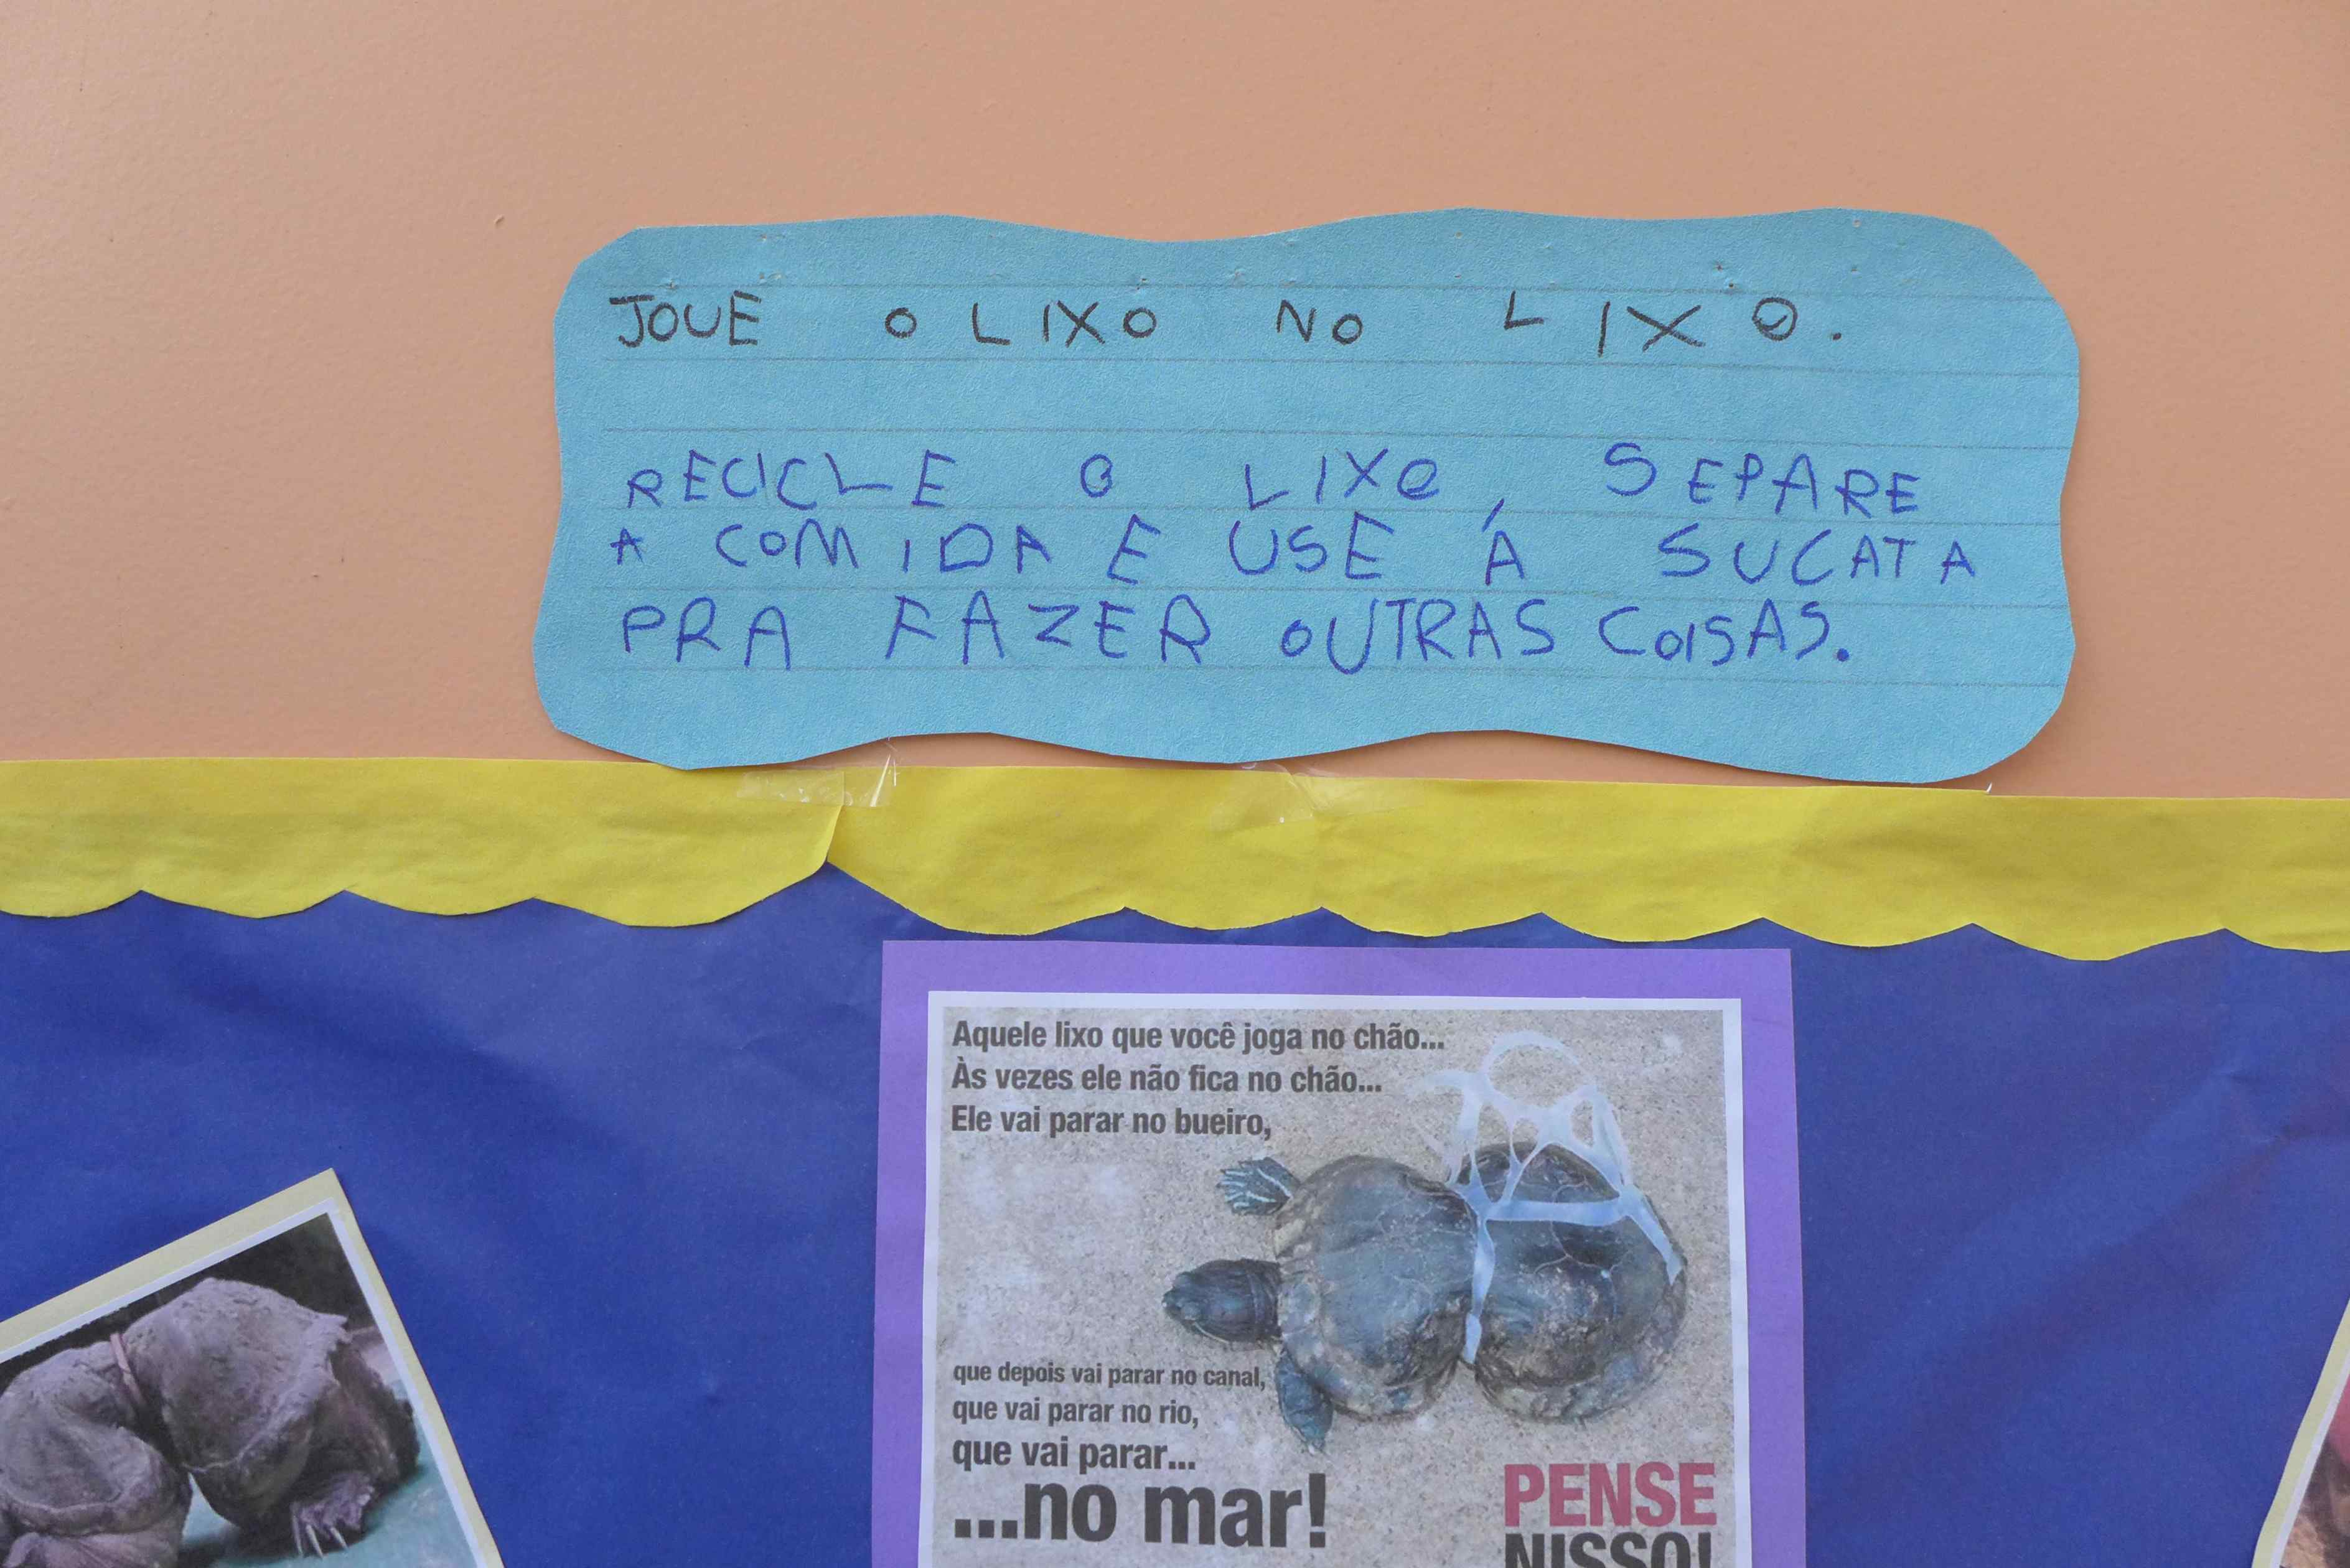 JOUE O LIXO NO LIXO.
RECICLE O LIXO, SEPARE
A COMIDA E USE A SUCATA
PRA FAZER OUTRAS COISAS.
Aquele lixo que você joga no chão...
Às vezes ele não fica no chão...
Ele vai parar no bueiro,
que depois vai parar no canal,
que vai parar no rio,
que vai parar...
...no mar!
PENSE
NISSO!